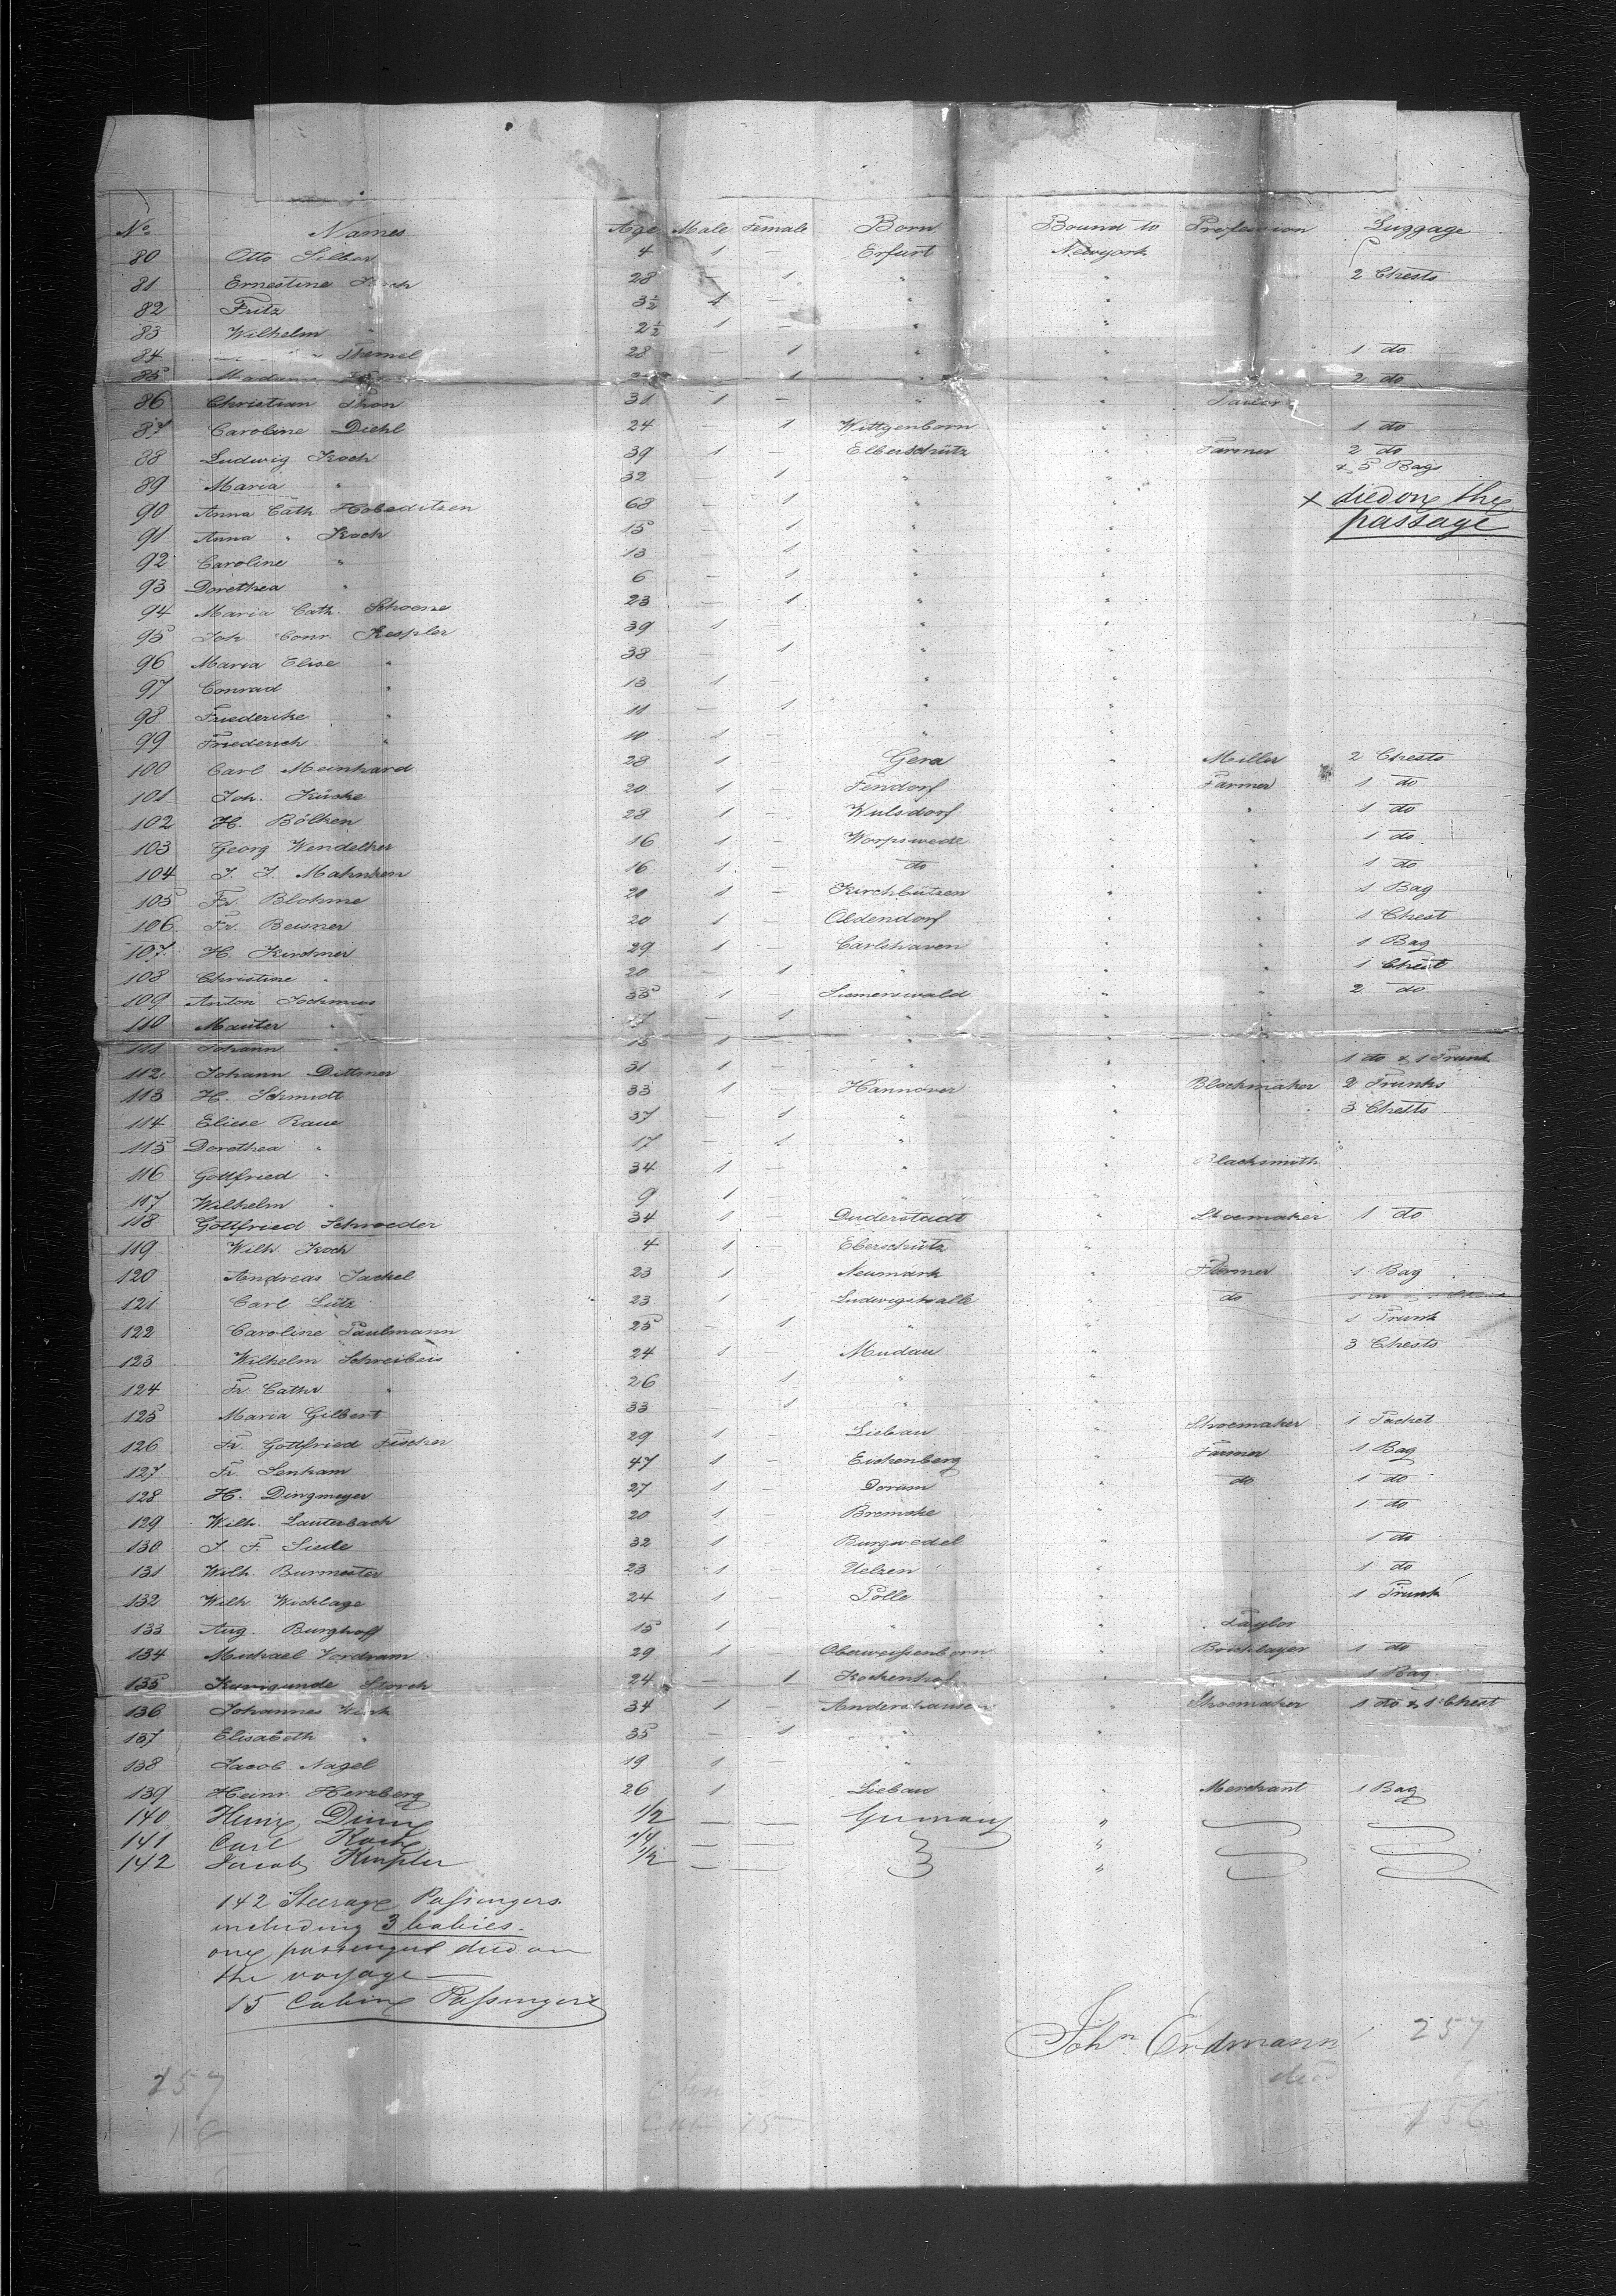 No. Names Age Male Female Born Bound to Profession Luggage
80 Otto Silber 4 1 — Erfurt Newyork
81 Ernestine Koch 28 — 1 " " 2 Chests
82 Fritz " 3½ 1 — " "
83 Wilhelm " 2½ 1 — " "
84 " Themel 28 — 1 " " 1 do
85 Madame — 1 " " 2 do
86 Christian Thon 31 1 — " " Tailor
87 Caroline Diehl 24 — 1 Wittgenborn " 1 do
88 Ludwig Koch 39 1 — Elberschütz " Farmer 2 do
& 5 Bags
89 Maria " 32 — 1 " "
90 Anna Cath Hobeditzen 68 — 1 " " x died on the
passage
91 Anna " Koch 15 — 1 " "
92 Caroline " 13 — 1 " "
93 Dorothea " 6 — 1 " "
94 Maria Cath. Schoene 23 — 1 " "
95 Joh Conr. Kespler 39 1 — " "
96 Maria Elise " 38 — 1 " "
97 Conrad " 13 1 — " "
98 Friedericke " 11 — 1 " "
99 Friederich " 10 1 — " "
100 Carl Meinhard 28 1 Gera " Miller 2 Chests
101 Joh. Kücke 20 1 Fendorf Farmer 1 do
102 H. Bölken 28 1 — Wulsdorf " " 1 do
103 Georg Wendelken 16 1 — Worpswede " " 1 do
104 J. J. Mahnken 16 1 — do " " 1 do
105 Fr. Blohme 20 1 — Kirchbützen " " 1 Bag
106 Fr. Beisner 20 1 — Oldendorf " " 1 Chest
107 H. Kirchner 29 1 — Carlshaven " " 1 Bag
108 Christine " 20 — 1 " " " 1 Chest
109 Anton Jochmus 35 1 — Siemerswald " " 2 do
110 " — 1 " "
111 Johann " 15 1 — " "
112 Johann Dittmer 31 1 — " " " 1 do & 1 Trunk
113 H. Schmidt 33 1 — Hannover " Blockmaker 2 Trunks
114 Eliese Raue 37 — 1 " " 3 Chests
115 Dorothea " 17 — 1 " " "
116 Gottfried " 34 1 — " " Blacksmith
117 Wilhelm " 9 1 — " "
118 Gottfried Schroeder 34 1 — Duderstadt " Shoemaker 1 do
119 Wilh. Koch 4 1 — Eberschütz "
120 Andreas Jackel 23 1 Neumark " Farmer 1 Bag
121 Carl Lütz 23 1 Ludwigshalle " do
122 Caroline Paulmann 25 — 1 " " 1 Trunk
123 Wilhelm Schreibeis 24 1 — Mudau " 3 Chests
124 Fr. Cathr " 26 — 1 " "
125 Maria Gilbert 33 — 1 "
126 Fr. Gottfried Fischer 29 1 — Liebau " Shoemaker 1 Packet
127 Fr. Senham 47 1 — Eichenberg " Farmer 1 Bag
128 H. Dingmeyer 27 1 — Dorum " do 1 do
129 Wilh. Lauterbach 20 1 — Bremcke " 1 do
130 J. F. Siede 32 1 — Burgwedel " 1 do
131 Wilh. Burmester 23 1 — Uelzen " 1 do
132 Wilh Wicklage 24 1 — Polle " 1 Trunk
133 Aug. Burghoff 15 1 — " " Taylor
134 Michael Vordram 29 1 — Oberweißenborn " Bricklayer 1 do
135 Kunigunde Storch 24 — 1 " 1 Bag
136 Johannes Wenk 34 1 — Andershausen Shoemaker 1 do & 1 Chest
137 Elisabeth " 35 — 1 " "
138 Jacob Nagel 19 1 — "
139 Heinr. Herzberg 26 1 Liebau " Merchant 1 Bag
140 1/2 — — Germany "
141 Carl Koch 1/4 — — "
142 Jacob Kespler 1/2 — — "
142 Steerage Passengers
including 3 babies.
one passenger died on
the voyage —
15 Cabin Passengers
John. Erdmann 257
257
18
15
156